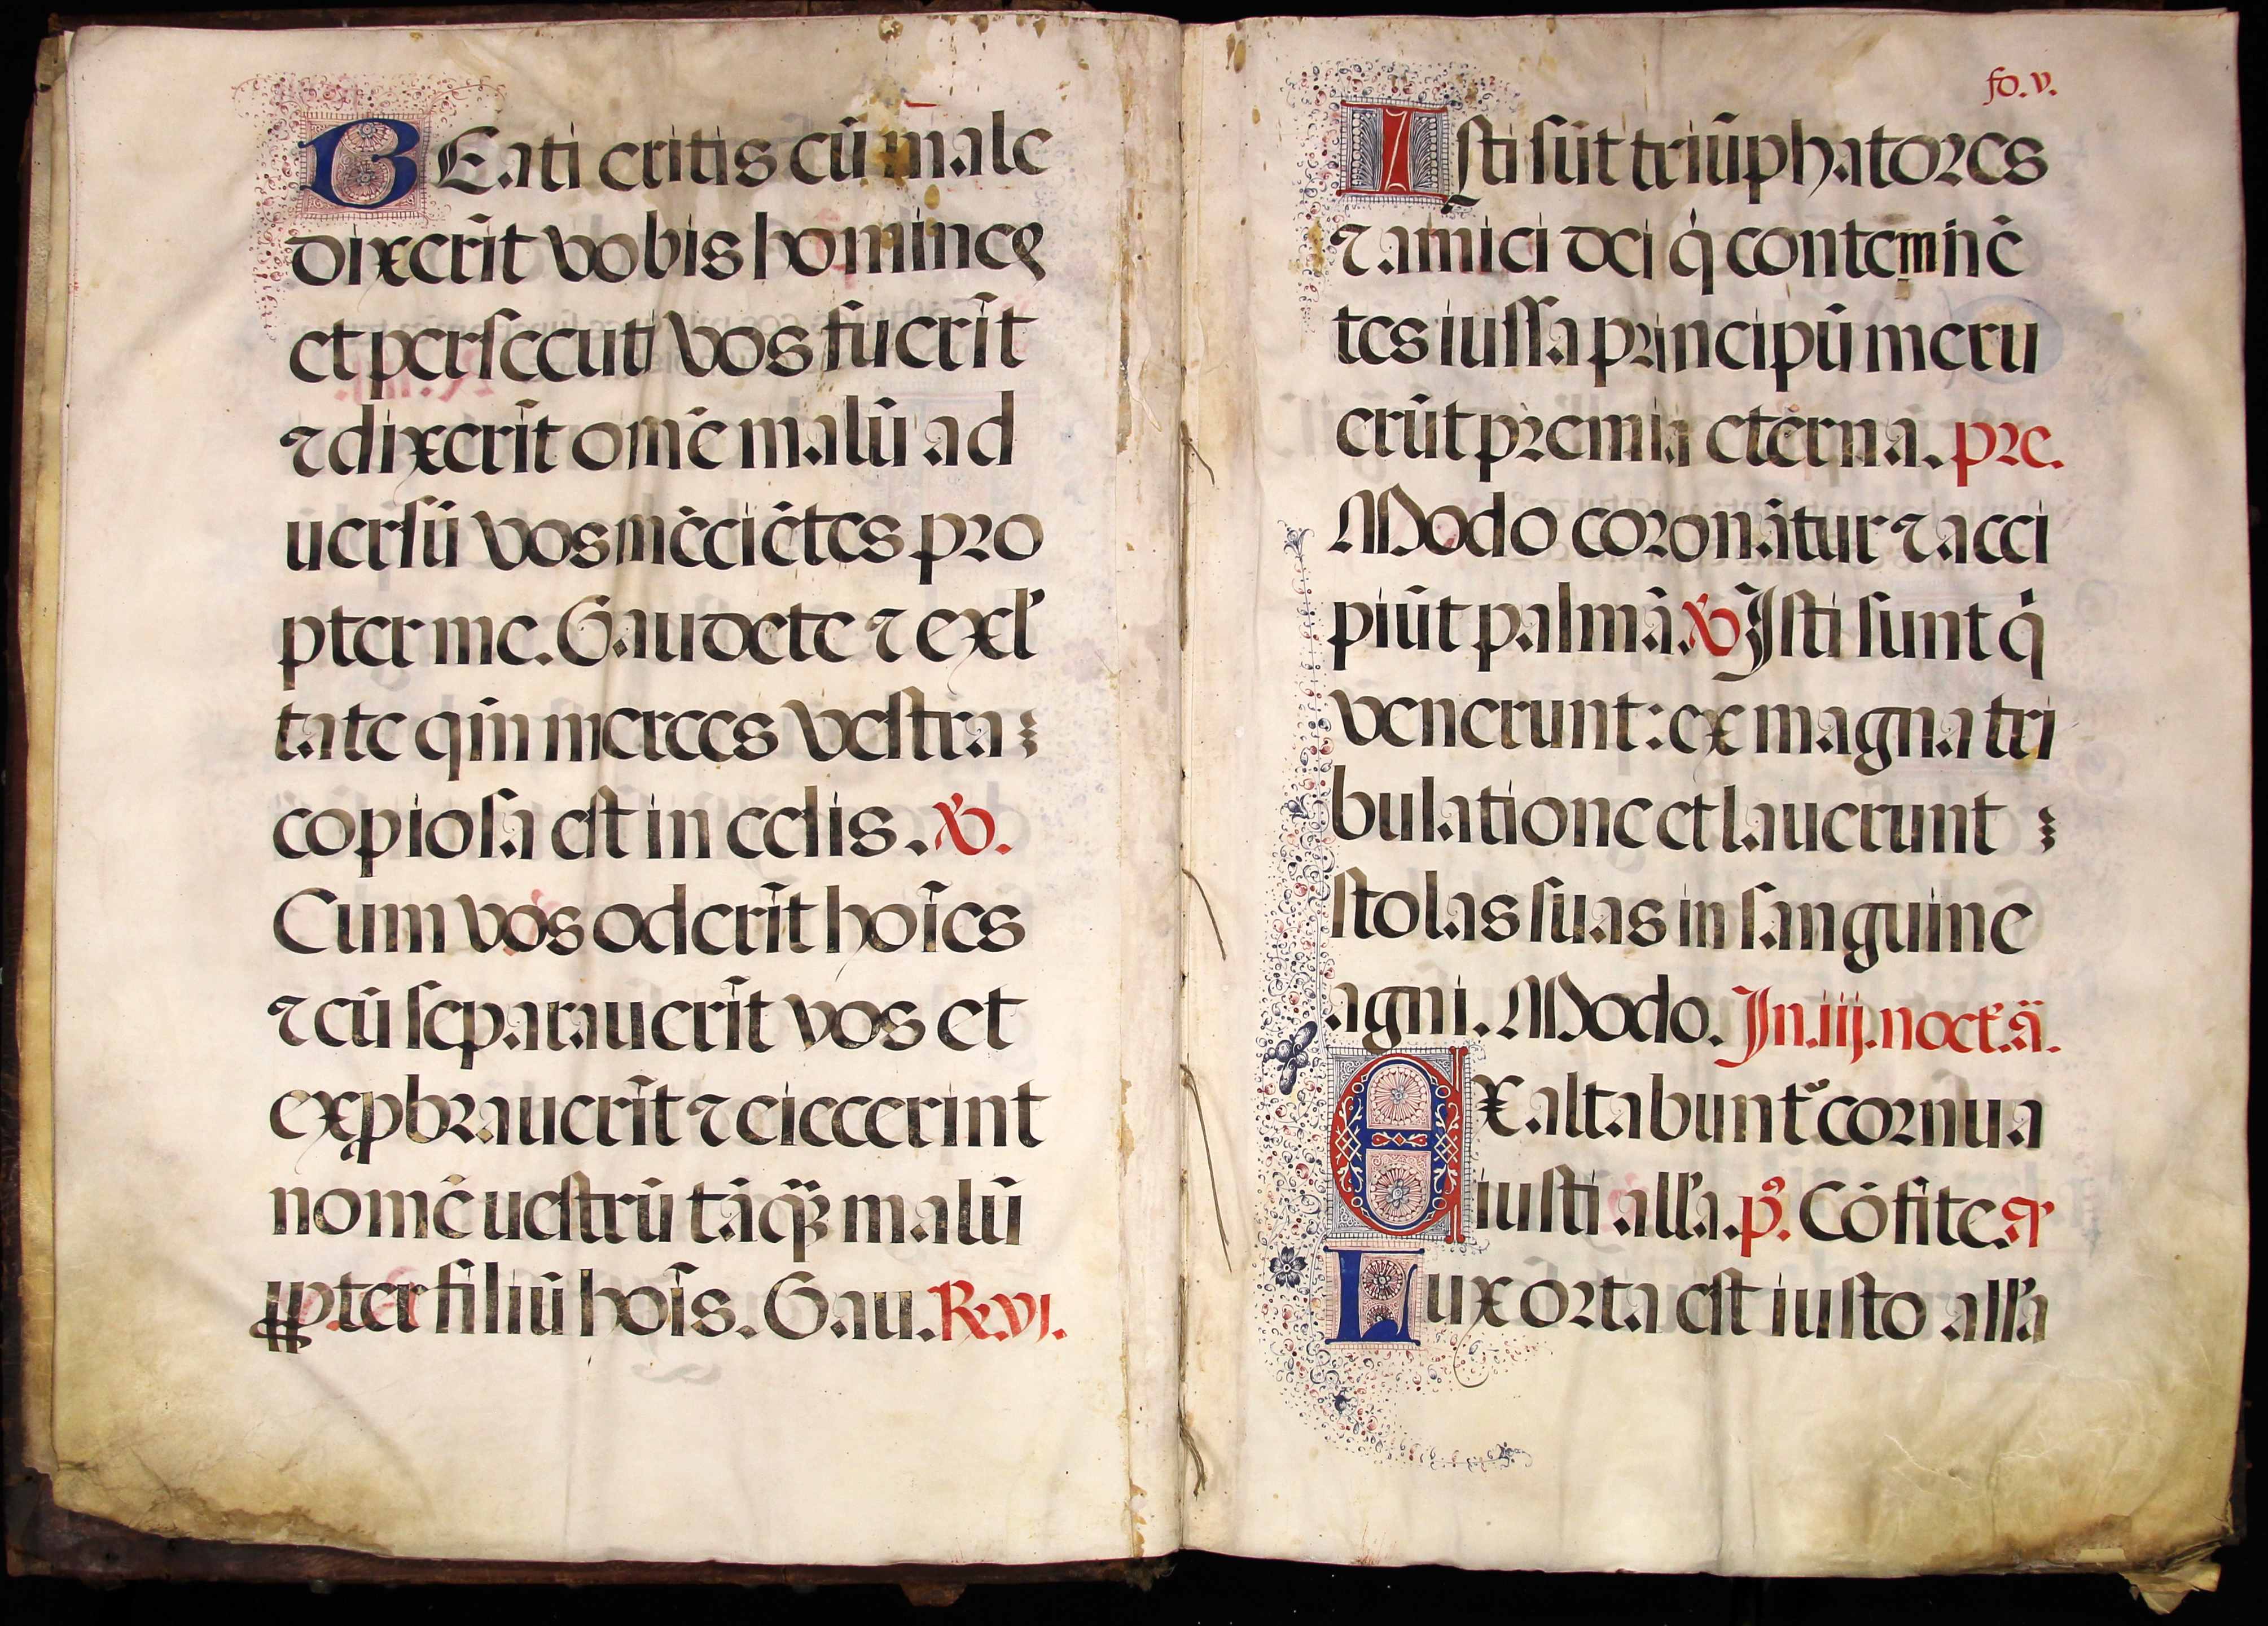 BEati eritis cū male
dixerīt vobis homines
et persecuti vos fuerīt
⁊ dixerīt omē malū ad
uersū vos mēciētes pro
pter me. Gaudete ⁊ exl'
tate qm̄ merces vestra
copiosa est in celis. ℣.
Cum vos oderīt hoīes
⁊ cū separauerīt vos et
exꝓbrauerīt ⁊ eiecerint
nomē uestrū tāꝗȝ malū
ꝓpter filiū hoīs. Gau. ℟. vj.
fo. v.
Isti sūt triūphatores
⁊ amici dei qͥ contemnē
tes iussa principū meru
erūt premia eterna. pre.
Modo coronātur ⁊ acci
piūt palmā. ℣ Isti sunt qͥ
venerunt: ex magna tri
bulatione et lauerunt
stolas suas in sanguine
agni. Modo. In. iij. noct. ā.
EXaltabunt᷑ cornua
iusti all'a. pͦ. Cōfite. ꝯ
Lux orta est iusto all'a